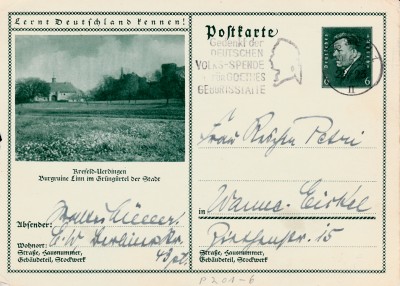 Lernt Deutschland kennen!
Postkarte
Gedenkt der
DEUTSCHEN
VOLKS-SPENDE
FÜR GOETHES
GEBURTSSTÄTTE
6 6
Krefeld-Uerdingen
Burgruine Linn im Grüngürtel der Stadt
Frau
Petri
in Wanne-Eickel
Ziethenstr. 15
Absender:
Wohnort:
Straße, Hausnummer,
Gebäudeteil, Stockwerk
Straße, Hausnummer,
Gebäudeteil, Stockwerk
P 201-6